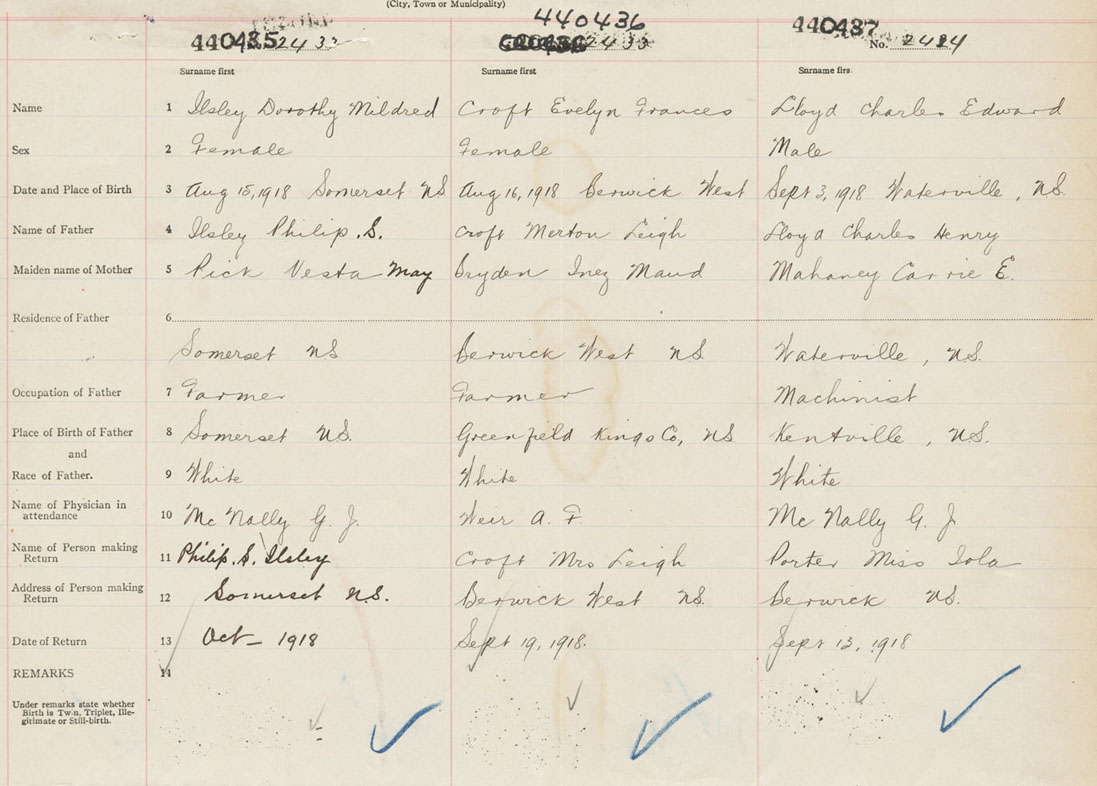 (City, Town or Municipality)
440435 2433 440436 2433 440437 No. 2434
Surname first Surname first Surname firs
Name 1 Ilsley Dorothy Mildred Croft Evelyn Frances Lloyd Charles Edward
Sex 2 Female Female Male
Date and Place of Birth 3 Aug 15, 1918 Somerset NS Aug 16, 1918 Berwick West Sept 3, 1918 Waterville, NS.
Name of Father 4 Ilsley Philip. S. Croft Merton Leigh Lloyd Charles Henry
Maiden name of Mother 5 Pick Vesta May Bryden Inez Maud Mahaney Carrie E.
Residence of Father 6
Somerset NS Berwick West NS Waterville, NS.
Occupation of Father 7 Farmer Farmer Machinist
Place of Birth of Father 8 Somerset NS. Greenfield Kings Co, NS Kentville, NS.
and
Race of Father. 9 White White White
Name of Physician in
attendance 10 Mc Nally G. J. Weir A. F. Mc Nally G. J
Name of Person making
Return 11 Philip. S. Ilsley Croft Mrs Leigh Porter Miss Iola
Address of Person making
Return 12 Somerset N.S. Berwick West NS. Berwick NS.
Date of Return 13 Oct - 1918 Sept 19, 1918. Sept 13, 1918
REMARKS 14
Under remarks state whether
Birth is Twin, Triplet, Ille-
gitimate or Still-birth.